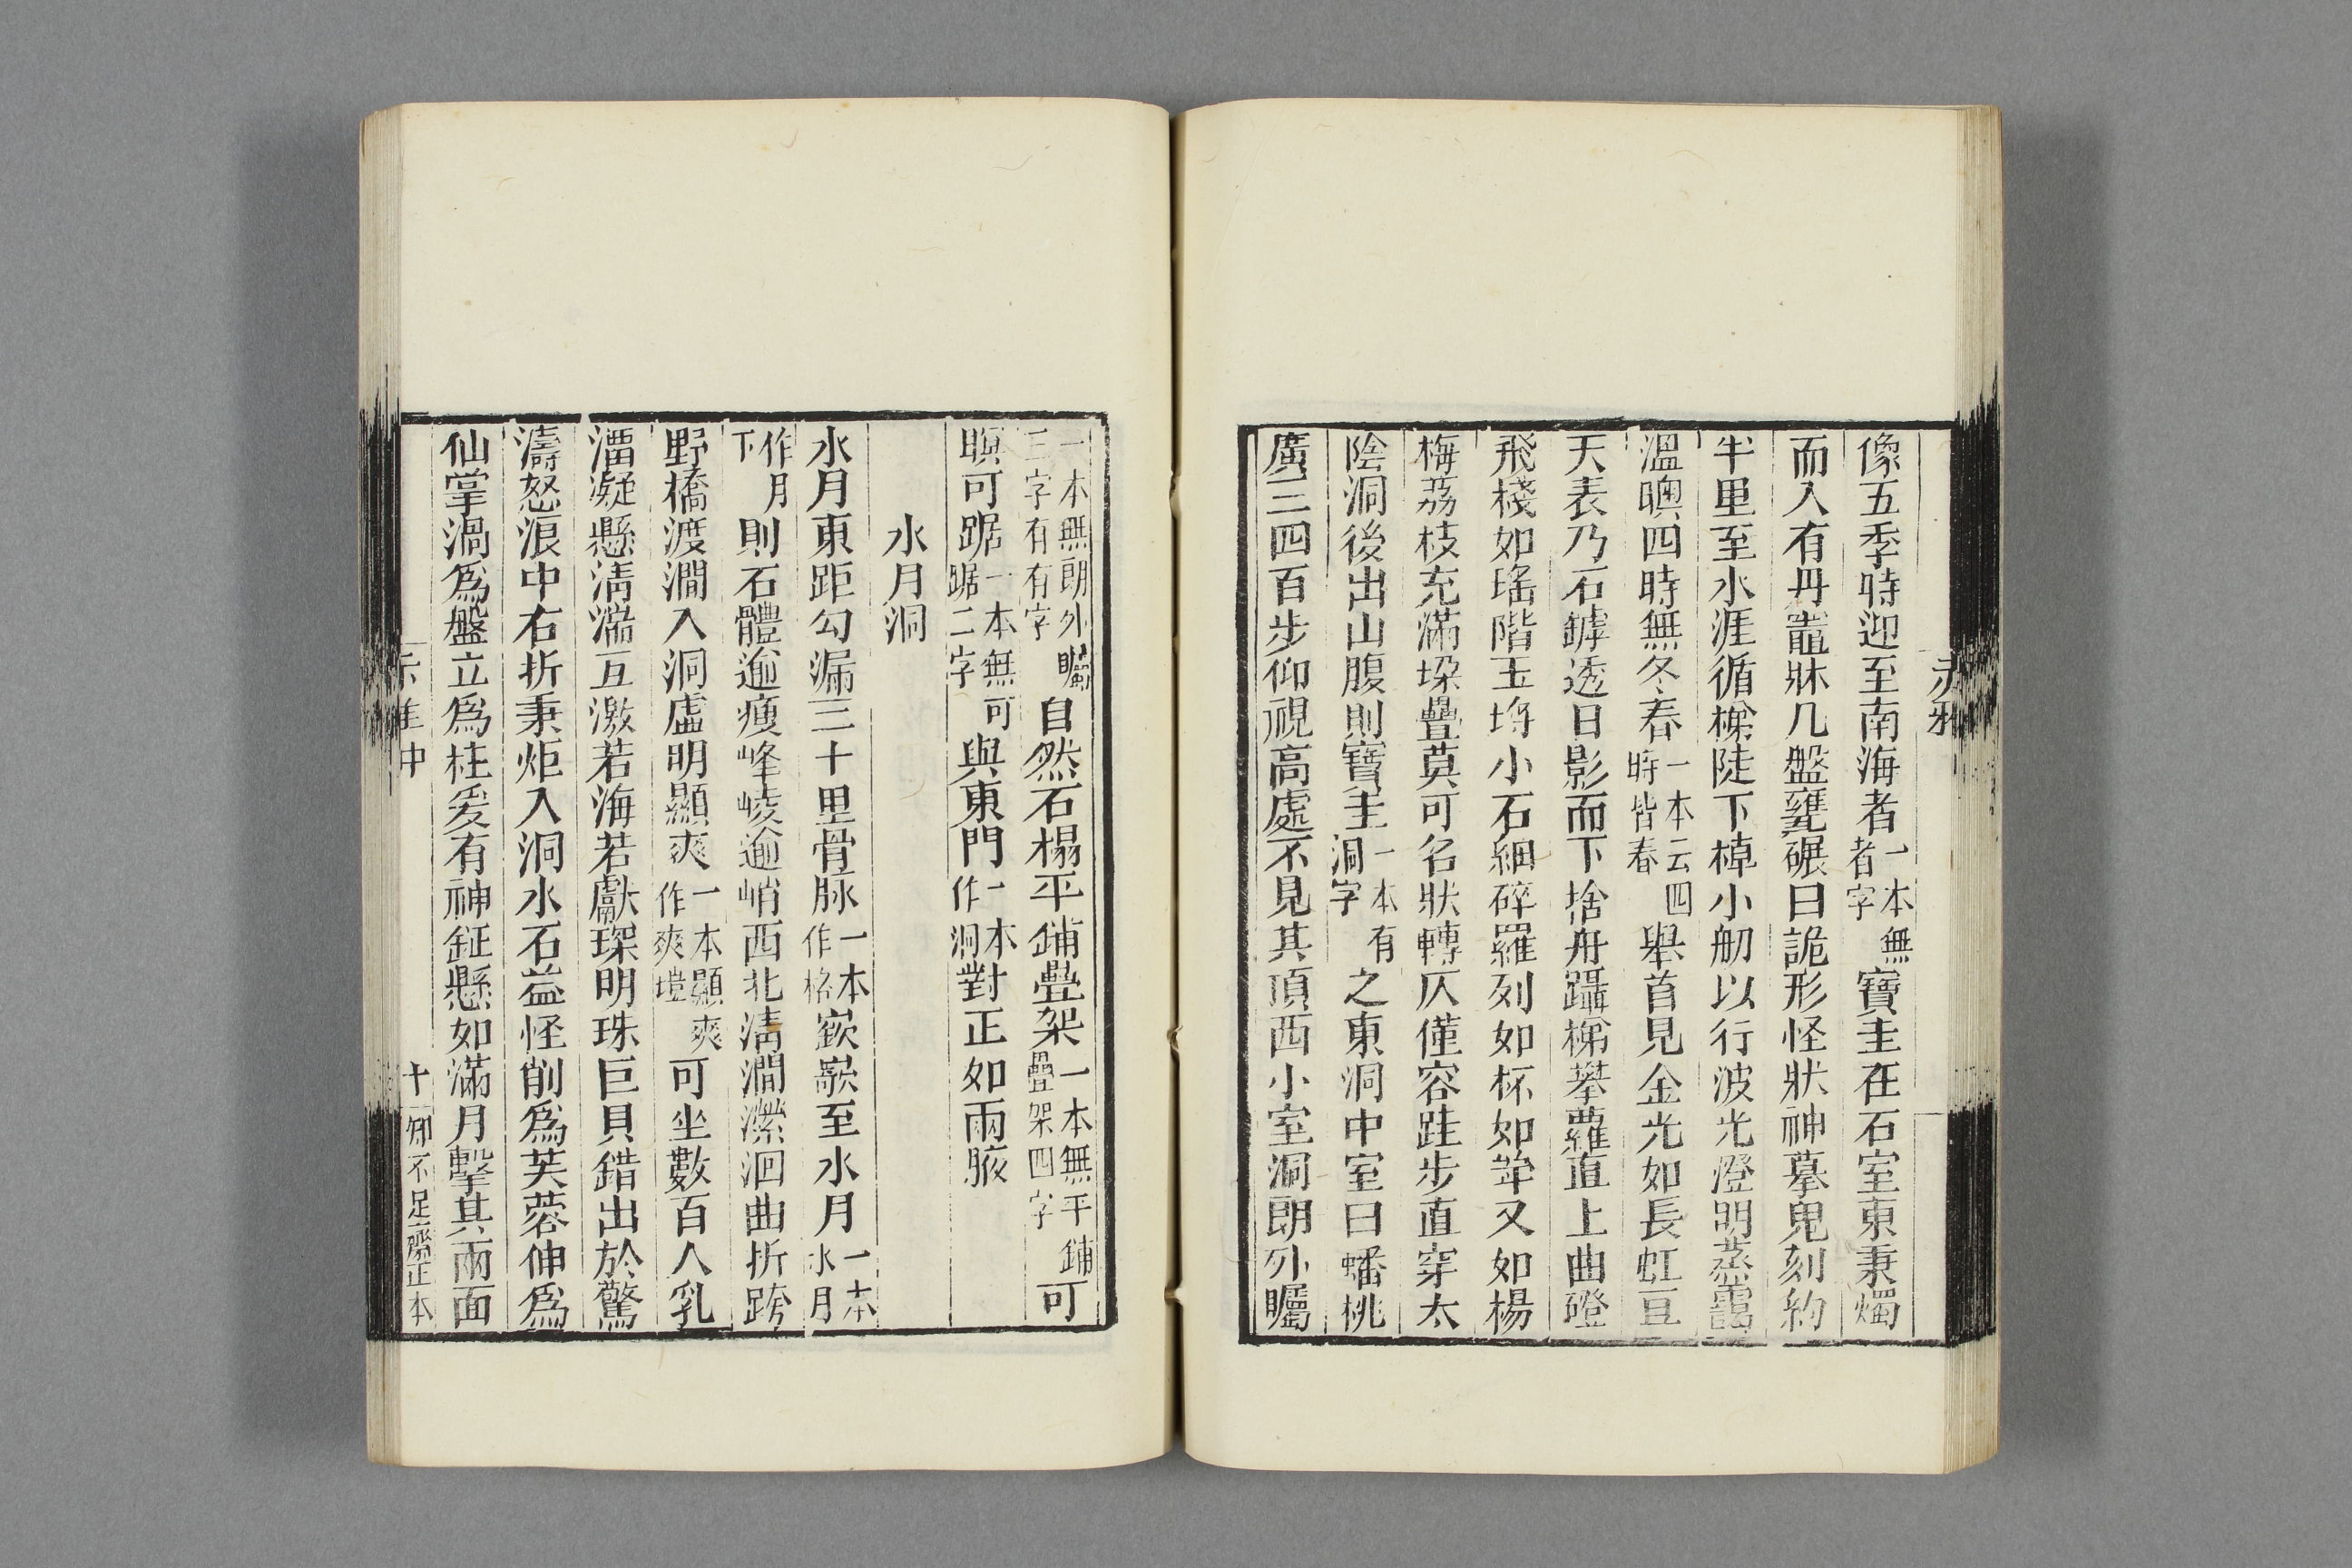 赤雅
像五季時迎至南海者一本無者字寶圭在石室東秉燭
而入有丹竈牀几盤甕碾臼詭形怪狀神摹鬼刻約
半里至水涯循梯陡下棹小舠以行波光澄明蒸靄
溫暾四時無冬春一本云四時皆春舉首見金光如長虹亘
天表乃石罅透日影而下捨舟躡梯攀蘿直上曲磴
飛棧如瑤階玉埒小石細碎羅列如杯如斝又如楊
梅荔枝充滿垛疊莫可名狀轉仄僅容跬步直穿太
陰洞後出山腹則寶圭一本有洞字之東洞中室曰蟠桃
廣三四百步仰視高處不見其頂西小室洞朗外矚
一本無朗外矚三字有有字自然石榻平鋪疊架一本無平鋪疊架四字可
瞑可踞一本無可踞二字與東門一本作洞對正如兩腋
水月洞
水月東距勾漏三十里骨脉一本作格嶔崟至水月一本水月
作月下則石體逾瘦峰崚逾峭西北清澗瀠洄曲折跨
野橋渡澗入洞虛明顯爽一本顯爽作爽塏可坐數百人乳
溜凝懸清湍互激若海若獻琛明珠巨貝錯出於驚
濤怒浪中右折秉炬入洞水石益怪削爲芙蓉伸爲
仙掌渦爲盤立爲柱爰有神鉦懸如滿月擊其兩面
赤雅中
十一
知不足齋正本